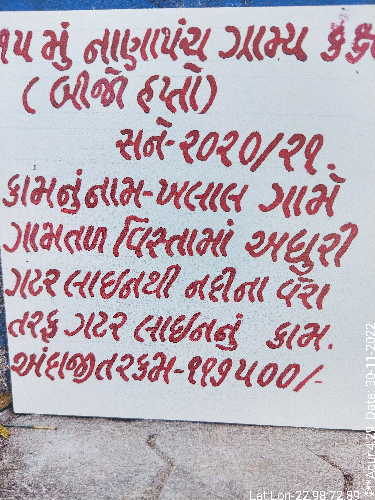 ૧૫ મું નાણાપંચ ગ્રામ્ય કક્ષ
( બીજો હપ્તો)
સને-૨૦૨૦/૨૧.
કામનું નામ-ખલાલ ગામે
ગામતળ વિસ્તામાં અધુરી
ગટર લાઇનથી નદીના વેરા
તરફ ગટર લાઇનનું કામ.
અંદાજીતરકમ-૧૧૭૫૦૦/-
Lat:Lon-22.98:72.99
Date: 30-11-2022